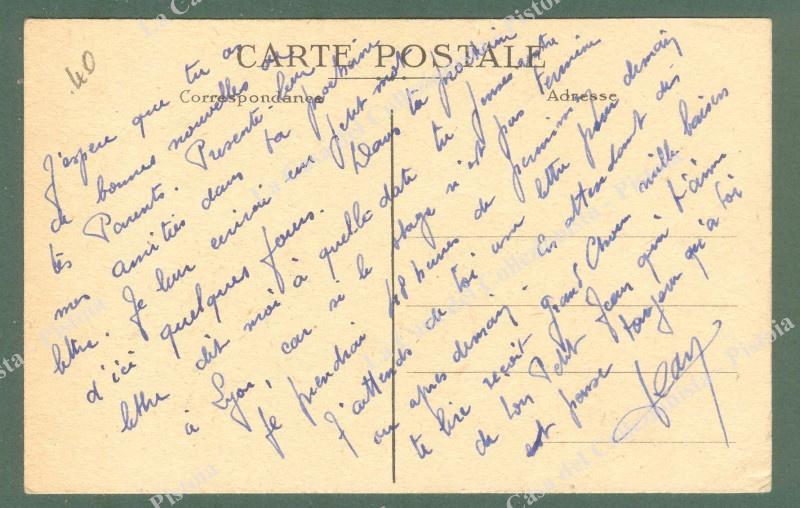 .40
CARTE POSTALE
Correspondance
Adresse
J'espère que tu a
de bonnes nouvelles de
tes Parents. Presente-leur
mes amitiés dans ta prochaine
lettre. Je leur un petit mot
d'ici quelques jours. Dans ta prochain
lettre dit moi à quelle date tu
à Lyon, car si le stage n'est pas terminé
Je prendrai 48 heures de permission.
J'attends de toi une lettre pour demain
ou après demain. En attendant de
te lire reçoit Grand mille baisers
de ton Petit Jean qui t'aime
et pense toujours qu'à toi
Jean
La Casa del Collezionista - Pistoia